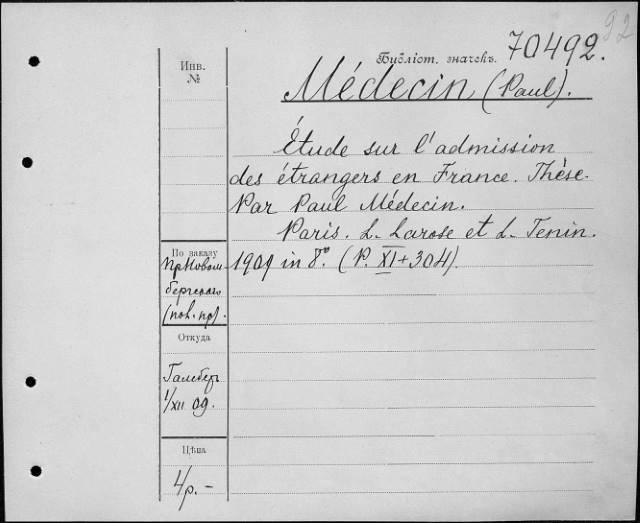 92
Библіот. значекъ. 70492.
Médecin (Paul).
Étude sur l'admission
des étrangers en France. Thèse.
Par Paul Médecin.
Paris. L. Larose et L. Tenin.
1909 in 8º. (P. XI+304).
Инв.
№
По заказу
пр. Новом
бергскаго
(пол. пр).
Откуда
Гамбер
1/XII 09.
Цѣна
4р. -